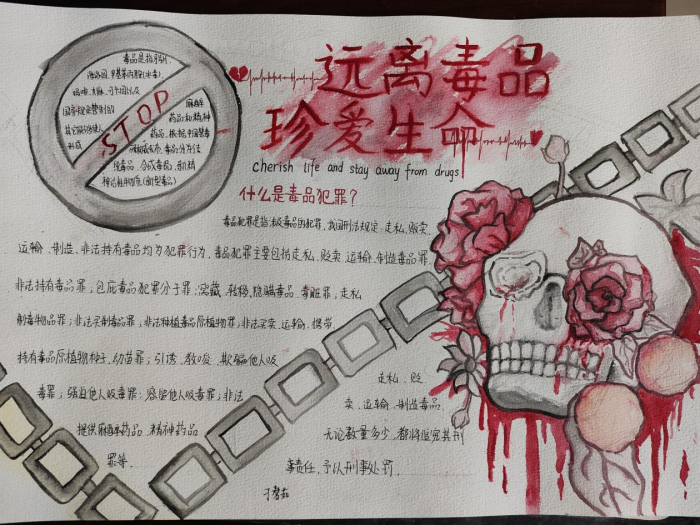 远离毒品
珍爱生命
cherish life and stay away from drugs
毒品是指鸦片、
海洛因、甲基苯丙胺(冰毒)
吗啡、大麻、可卡因以及
国家规定管制的
其它能够使人
形成
STOP
麻醉
药品和精神
药品。根据中国禁毒
毒品分为传
统毒品、合成毒品、新精
神活性物质(新型毒品)
什么是毒品犯罪?
毒品犯罪是指涉及毒品的犯罪,我国刑法规定,走私、贩卖、
运输、制造、非法持有毒品均为犯罪行为,毒品犯罪主要包括走私、贩卖、运输、制造毒品罪,
非法持有毒品罪;包庇毒品犯罪分子罪;窝藏、转移、隐瞒毒品、毒赃罪;走私
制毒物品罪;非法买卖制毒品罪;非法种植毒品原植物罪;非法买卖、运输、携带、
持有毒品原植物种子、幼苗罪;引诱、教唆、欺骗他人吸
毒罪;强迫他人吸毒罪;容留他人吸毒罪;非法
提供麻醉药品、精神药品
罪等。
走私、贩
卖、运输、制造毒品,
无论数量多少,都将追究其刑
事责任,予以刑事处罚。